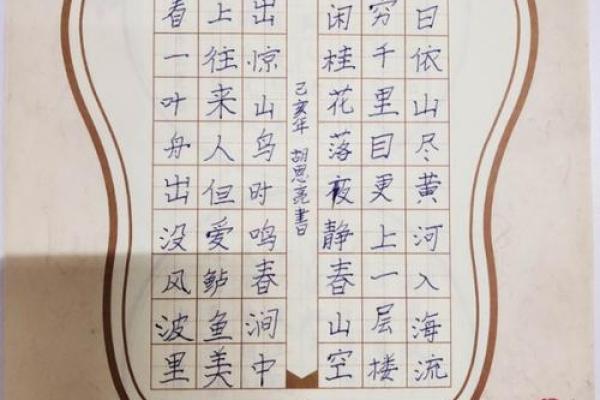 日依山尽黄河入海流
穷千里目更上一层楼
闲桂花落夜静春山空
己亥年 胡思亮書
出惊山鸟时鸣春涧中
上往来人但爱鲈鱼美
看一叶舟出没风波里